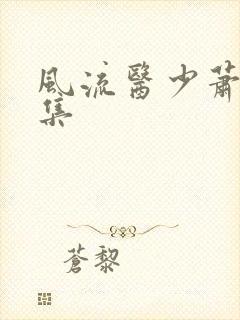 風流醫少蕭
集
蒼黎